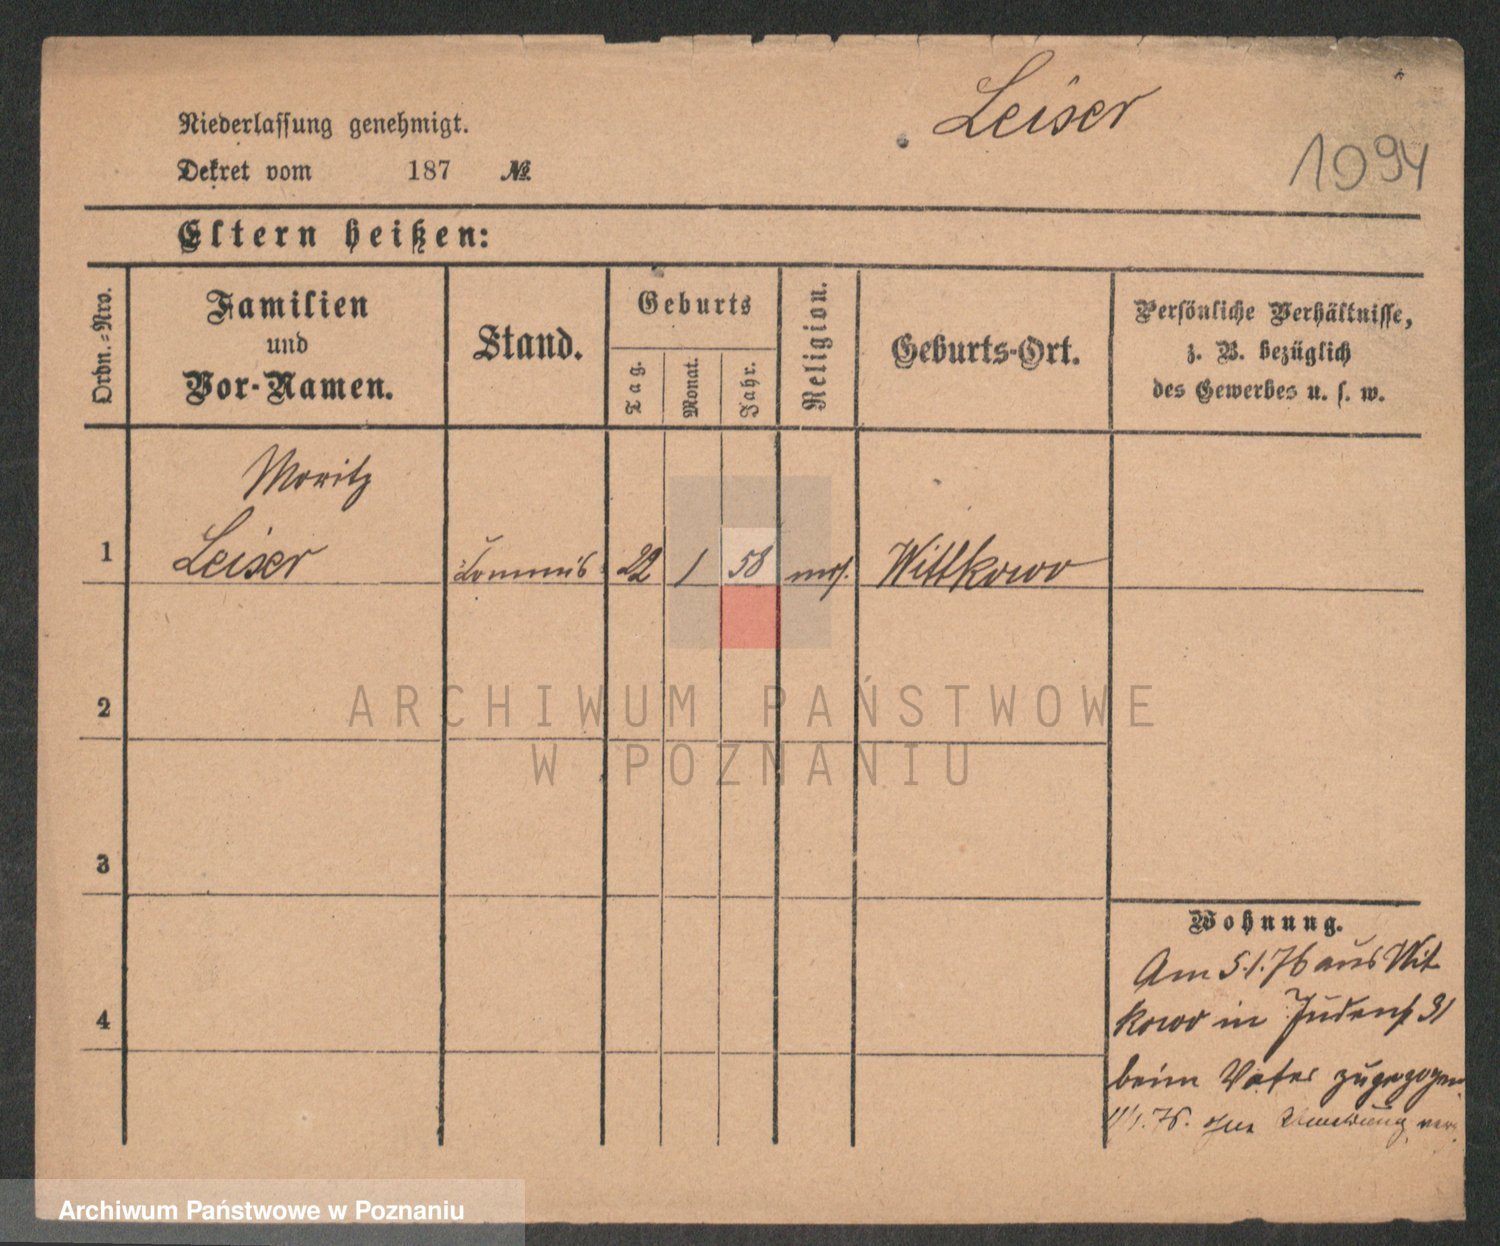 Leiser
1094
Niederlassung genehmigt.
Dekret vom 187 №
Eltern heißen:
Ordn.-Nro.
Familien
und
Vor-Namen.
Stand.
Geburts
Tag.
Monat.
Jahr.
Religion.
Geburts-Ort.
Persönliche Verhältnisse,
z. B. bezüglich
des Gewerbes u. s. w.
Moritz
1 Leiser Commis 22 1 58 mos. Wittkowo
2
ARCHIWUM PAŃSTWOWE
W POZNANIU
3
Wohnung.
Am 5.1.76 aus Wit
kowo in Judenst 31
4
beim Vater zugezogen
11/1.76. ohne Abmeldung
Archiwum Państwowe w Poznaniu